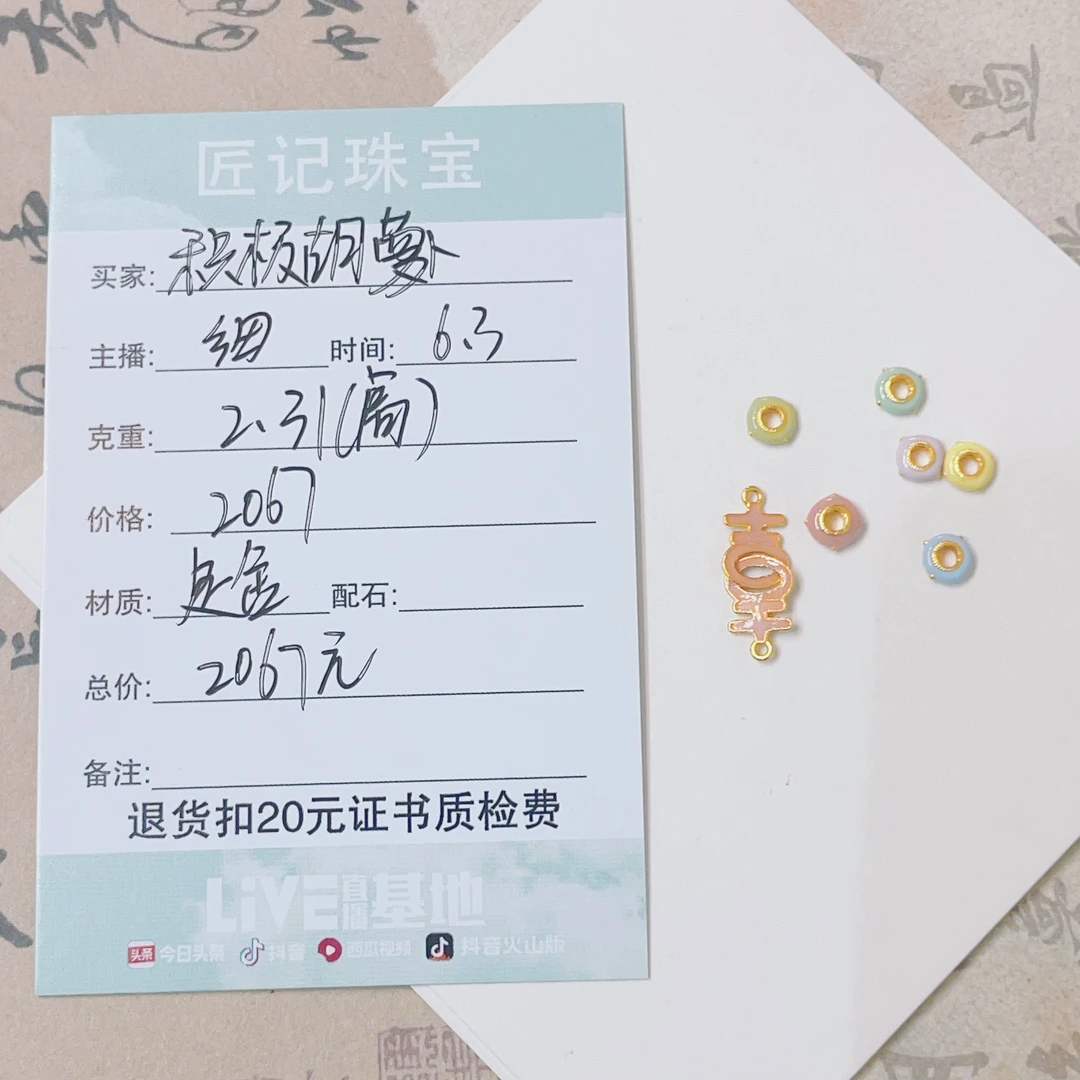 匠记珠宝
买家: 积极胡萝卜
主播: 细 时间: 6.3
克重: 2.31(高)
价格: 2067
材质: 足金 配石:
总价: 2067元
备注:
退货扣20元证书质检费
LiVE直播基地
头条 今日头条 抖音 西瓜视频 抖音火山版